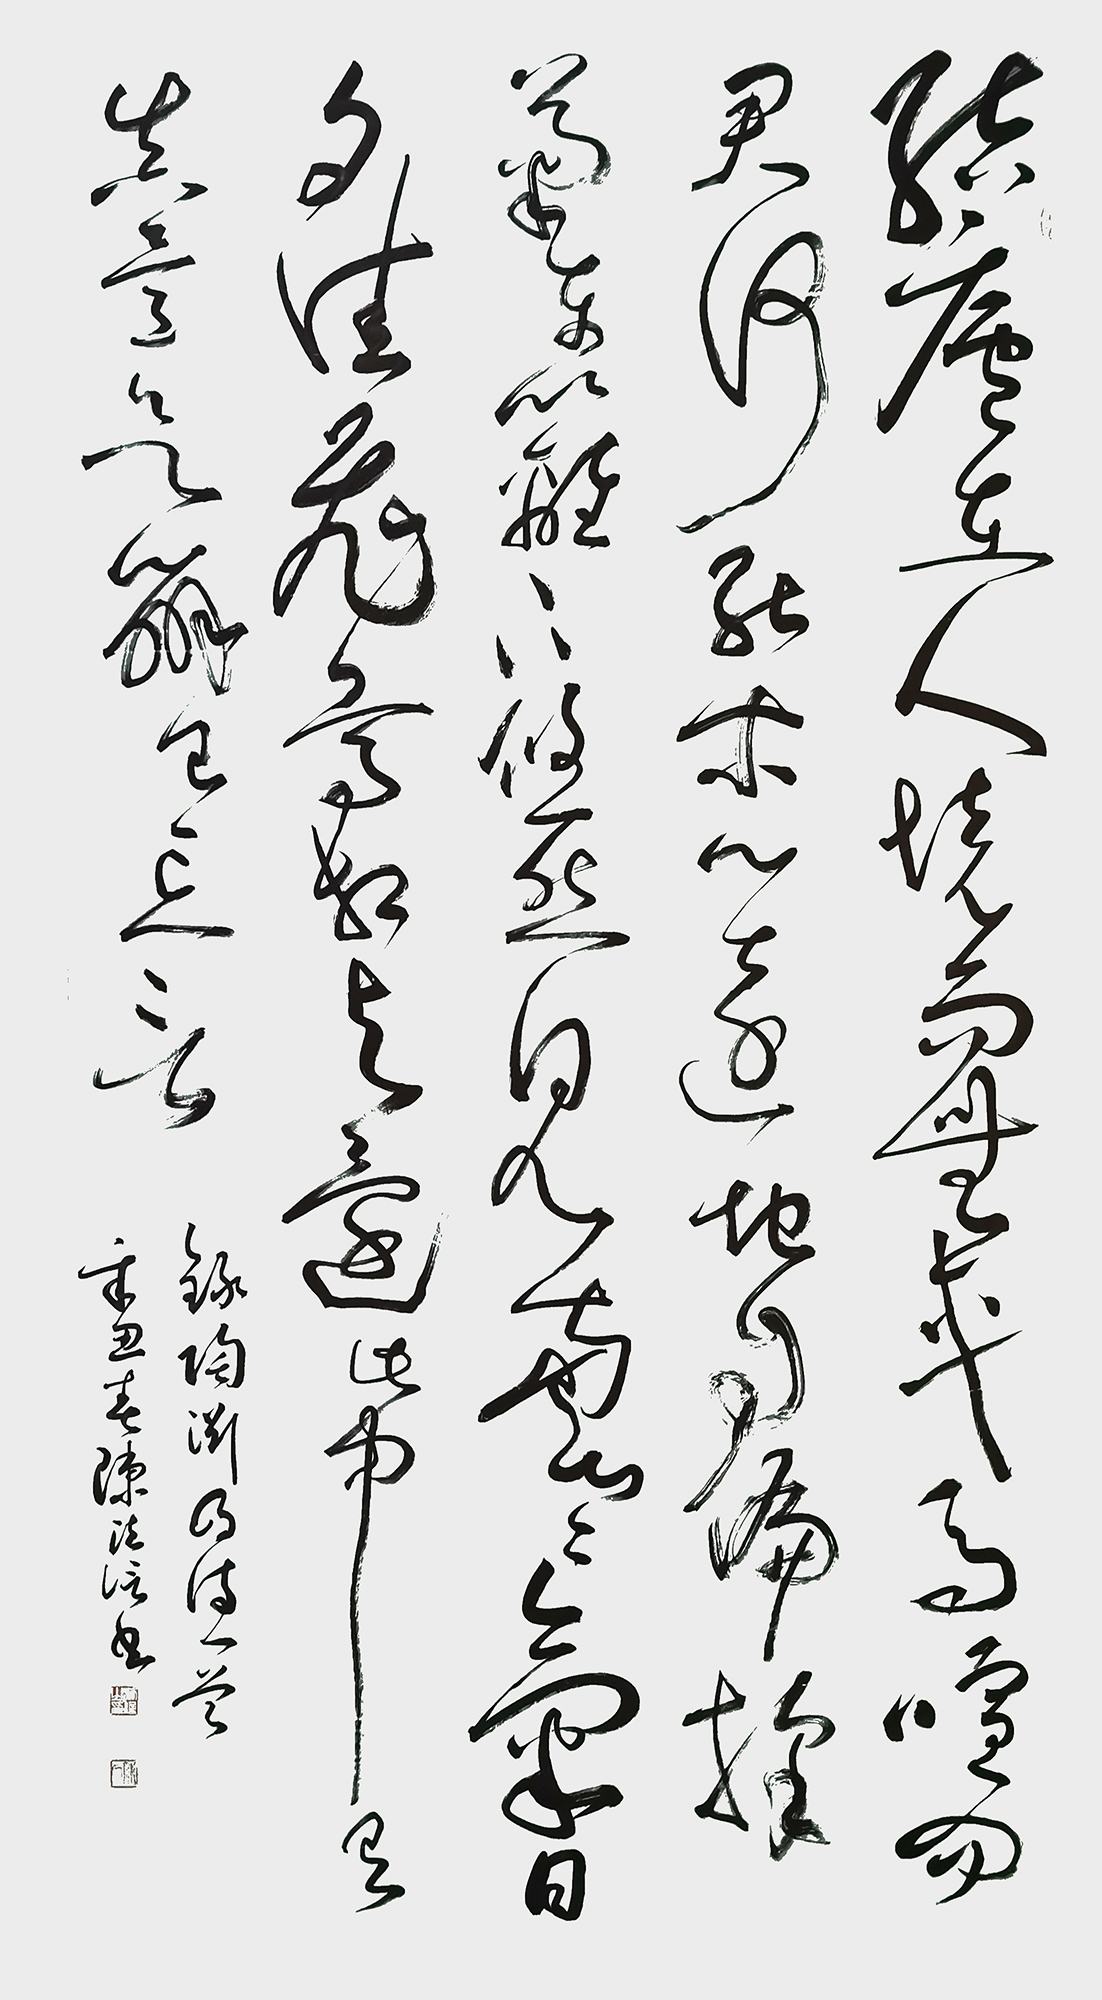 結廬在人境而無車馬喧問
君何能爾心遠地自偏採
菊東籬下悠然見南山々氣日
夕佳飛鳥相與還此中有
真意欲辨已忘言
錄陶淵明詩一首
辛丑春陳法書